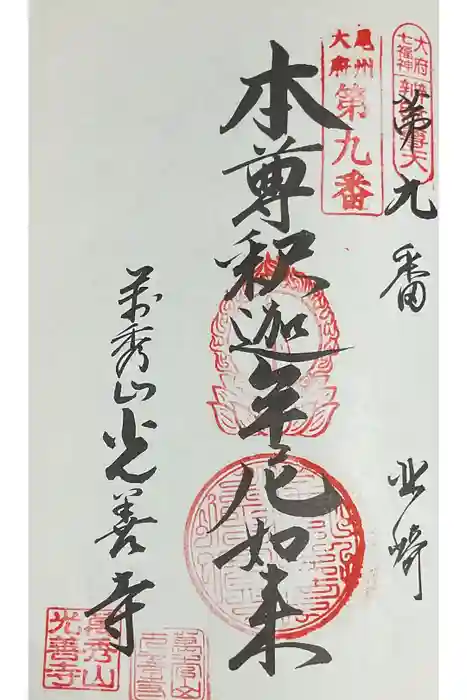 大府七福神
尾州大府
第九番
第九番 北崎
本尊釈迦牟尼如来
萬秀山光善寺
萬秀山光善寺